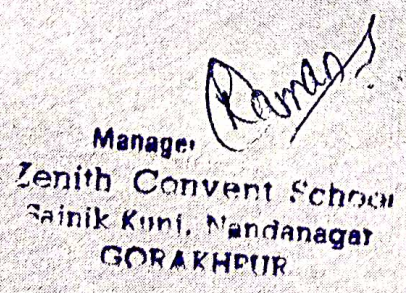 Manager
Zenith Convent School
Sainik Kunj, Nandanagar
GORAKHPUR